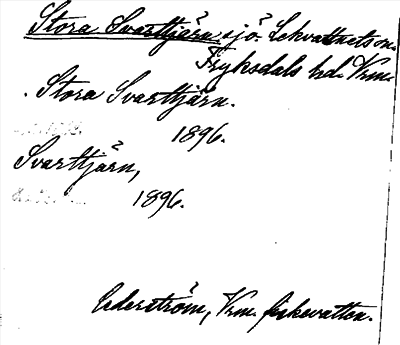 Stora Svarttjärn, sjö. Lekvattnets sn.
Fryksdals hd. Vrm.
. Stora Svarttjärn.
1896.
Svarttjärn,
1896.
Cederström, Vrm. fiskevatten.